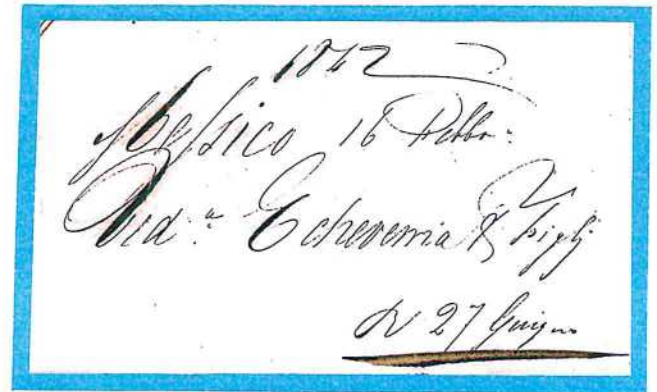 1842
Messico 16 Febbr:
Ved.ª Echeverria & Figli
R 27 Giugno